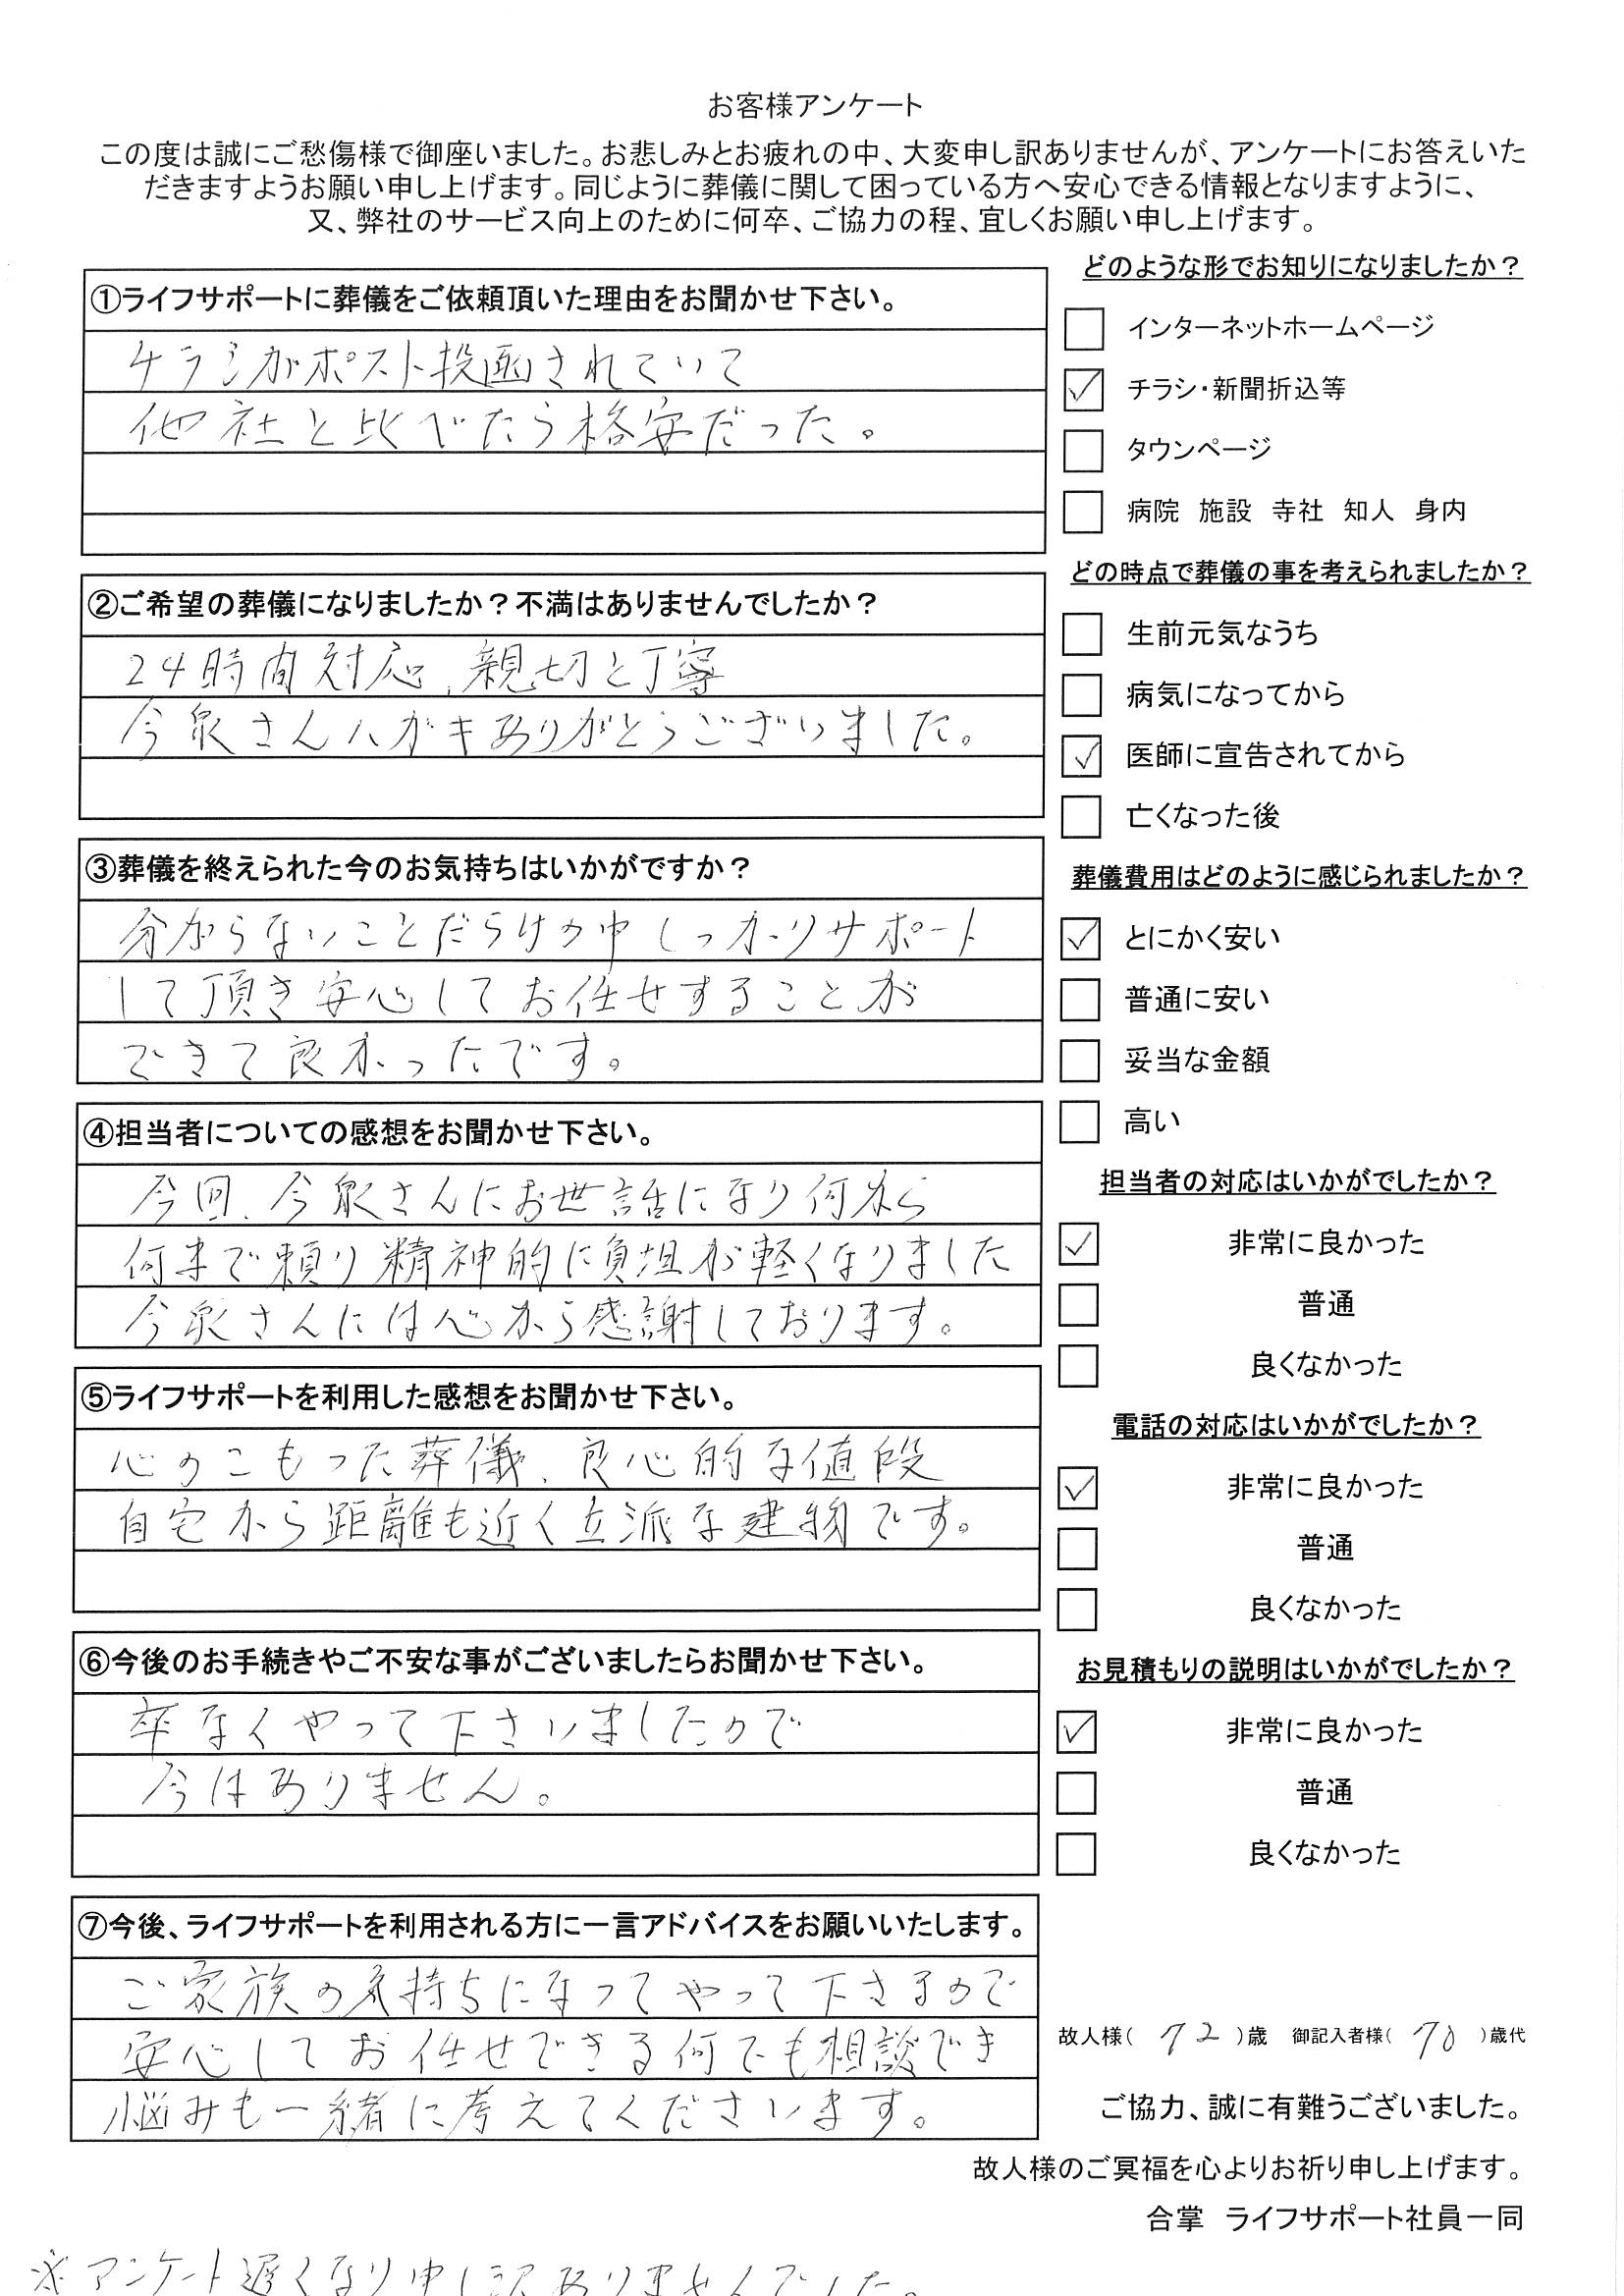 お客様アンケート
この度は誠にご愁傷様で御座いました。お悲しみとお疲れの中、大変申し訳ありませんが、アンケートにお答えいた
だきますようお願い申し上げます。同じように葬儀に関して困っている方へ安心できる情報となりますように、
又、弊社のサービス向上のために何卒、ご協力の程、宜しくお願い申し上げます。
①ライフサポートに葬儀をご依頼頂いた理由をお聞かせ下さい。
チラシがポスト投函されていて
他社と比べたら格安だった。
②ご希望の葬儀になりましたか？不満はありませんでしたか？
24時間対応、親切と丁寧
今泉さんハガキありがとうございました。
③葬儀を終えられた今のお気持ちはいかがですか？
分からないことだらけの中しっかりサポート
して頂き安心してお任せすることが
できて良かったです。
④担当者についての感想をお聞かせ下さい。
今回、今泉さんにお世話になり何から
何まで頼り精神的に負担が軽くなりました
今泉さんには心から感謝しております。
⑤ライフサポートを利用した感想をお聞かせ下さい。
心のこもった葬儀、良心的な値段
自宅から距離も近く立派な建物です。
⑥今後のお手続きやご不安な事がございましたらお聞かせ下さい。
卒なくやって下さいましたので
今はありません。
⑦今後、ライフサポートを利用される方に一言アドバイスをお願いいたします。
ご家族の気持ちになってやって下さるので
安心してお任せできる何でも相談でき
悩みも一緒に考えてくださいます。
※アンケート遅くなり申し訳ありませんでした。
どのような形でお知りになりましたか？
インターネットホームページ
✓ チラシ・新聞折込等
タウンページ
病院 施設 寺社 知人 身内
どの時点で葬儀の事を考えられましたか？
生前元気なうち
病気になってから
✓ 医師に宣告されてから
亡くなった後
葬儀費用はどのように感じられましたか？
✓ とにかく安い
普通に安い
妥当な金額
高い
担当者の対応はいかがでしたか？
✓ 非常に良かった
普通
良くなかった
電話の対応はいかがでしたか？
✓ 非常に良かった
普通
良くなかった
お見積もりの説明はいかがでしたか？
✓ 非常に良かった
普通
良くなかった
故人様（ 72 ）歳 御記入者様（ 70 ）歳代
ご協力、誠に有難うございました。
故人様のご冥福を心よりお祈り申し上げます。
合掌 ライフサポート社員一同